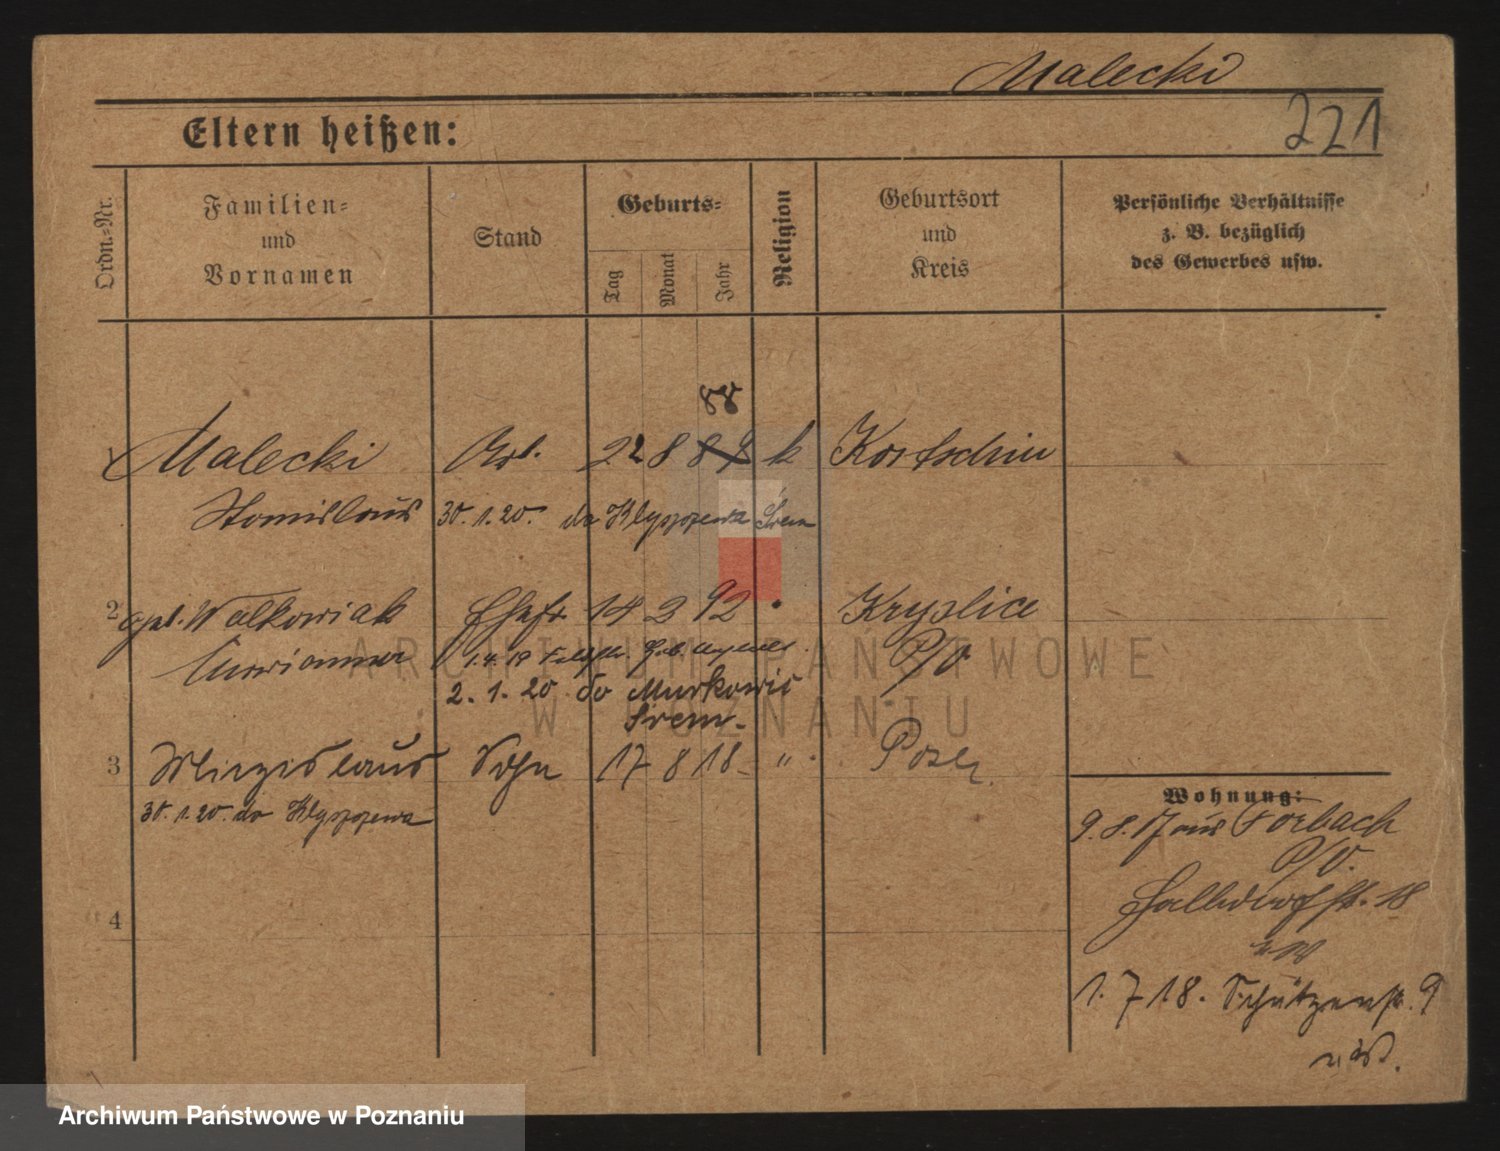 Malecki
221
Eltern heißen:
Ordn.-Nr.
Familien-
und
Vornamen
Stand
Geburts-
Tag
Monat
Jahr
Religion
Geburtsort
und
Kreis
Persönliche Verhältnisse
z. B. bezüglich
des Gewerbes usw.
88
1 Malecki Arb. 22 8 88 k Kortschin
Stanislaus 30.1.20. do Klyszczewa Śrem
2 geb. Walkowiak Ehefr 14 2 92 " Kryslice
Marianna 1.4.19 P/O
2.1.20 do Murkowic
Śrem
3 Miezislaus Sohn 17 8 18 " Posen
30.1.20. do Klyszczewa
4
Wohnung:
9.8.17 aus Forbach
P/O.
Halldorfstr. 18
1.7.18. Schützenstr. 9
ARCHIWUM PAŃSTWOWE
W POZNANIU
Archiwum Państwowe w Poznaniu